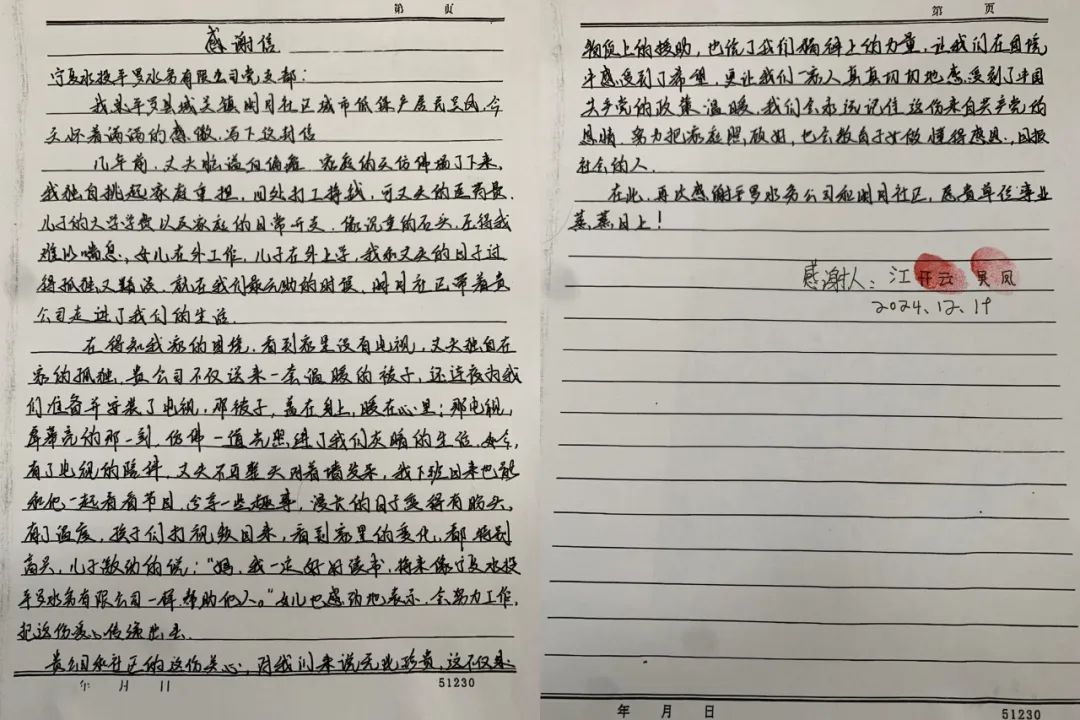 第 页
感谢信
宁夏水投平罗水务有限公司党支部：
我是平罗县城关镇明月社区城市低保户居民吴凤，今
天怀着满满的感激，写下这封信
几年前，丈夫脑溢血偏瘫，家庭的天仿佛塌了下来，
我独自挑起家庭重担，四处打工挣钱，可丈夫的医药费，
儿子的大学学费以及家庭的日常开支，像沉重的石头，压得我
难以喘息，女儿在外工作，儿子在外上学，我和丈夫的日子过
得孤独又艰涩，就在我们最无助的时候，明月社区带着贵
公司走进了我们的生活。
在得知我家的困境，看到家里没有电视，丈夫独自在
家的孤独，贵公司不仅送来一套温暖的被子，还连夜为我
们准备并安装了电视，那被子，盖在身上，暖在心里；那电视，
屏幕亮的那一刻，仿佛一道光照进了我们灰暗的生活，如今，
有了电视的陪伴，丈夫不再整天对着墙发呆，我下班回来也能
和他一起看看节目，分享一些趣事，漫长的日子变得有盼头，
有了温度，孩子们打视频回来，看到家里的变化，都特别
高兴，儿子激动的说："妈，我一定好好读书，将来像宁夏水投
平罗水务有限公司一样帮助他人。"女儿也感动地表示，会努力工作，
把这份爱心传递出去。
贵公司和社区的这份关心，对我们来说无比珍贵，这不仅是
年 月 日
51230
第 页
物质上的援助，也给了我们精神上的力量，让我们在困境
中感受到了希望，更让我们一家人真真切切地感受到了中国
共产党的政策温暖，我们会永远记住这份来自共产党的
恩情，努力把家庭照顾好，也会教自子女做懂得感恩、回报
社会的人。
在此，再次感谢平罗水务公司和明月社区，愿贵单位事业
蒸蒸日上！
感谢人：江开云 吴凤
2024、12、19
年 月 日
51230